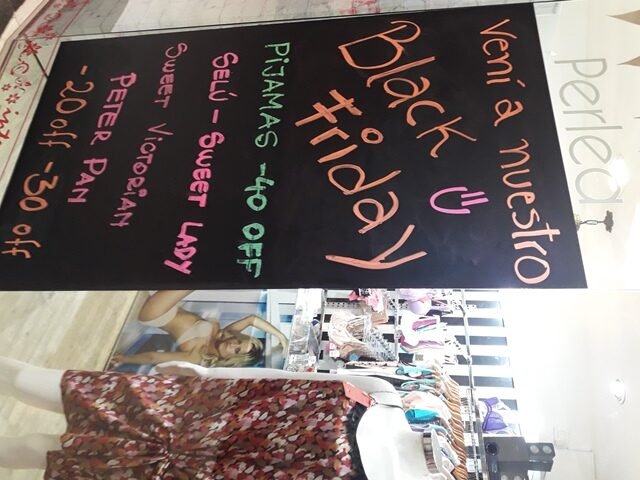 Perlea
Vení a nuestro
Black
Friday
PiJAMAS -40 OFF
SELÚ - SWEET LADY
SWEET VICTORIAN
PETER PAN
-20 off -30 off